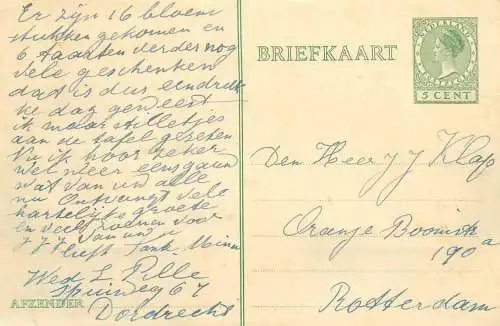 Er zijn 16 bloem
stukken gekomen en
6 taarten verder nog
vele geschenken
dat is dus een drukke
dag geweest
ik maar stilletjes
aan de tafel gezeten
Nu ik hoor zeker
wel weer eens gauw
wat van uw alle
nu Ontvangt vele
hartelijke groete
en veel zoenen voor
J J J van uw u
lieft Tante Mina
Wed L Pille
Spuiweg 67
AFZENDER Dordrecht
BRIEFKAART
NEDERLAND
5 CENT
Den Heer J J Klap
Oranje Boomstr
190a
Rotterdam